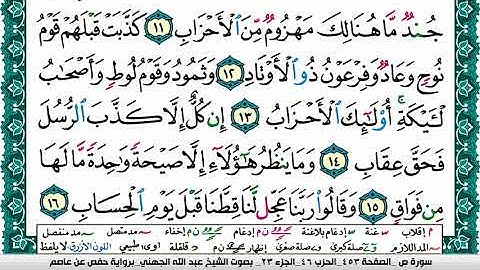 جُندٌ مَّا هُنَالِكَ مَهْزُومٌ مِّنَ ٱلْأَحْزَابِ ١١ كَذَّبَتْ قَبْلَهُمْ قَوْمُ
نُوحٍ وَعَادٌ وَفِرْعَوْنُ ذُو ٱلْأَوْتَادِ ١٢ وَثَمُودُ وَقَوْمُ لُوطٍ وَأَصْحَٰبُ
لْـَٔيْكَةِ ۚ أُو۟لَٰٓئِكَ ٱلْأَحْزَابُ ١٣ إِن كُلٌّ إِلَّا كَذَّبَ ٱلرُّسُلَ
فَحَقَّ عِقَابِ ١٤ وَمَا يَنظُرُ هَٰٓؤُلَآءِ إِلَّا صَيْحَةً وَٰحِدَةً مَّا لَهَا
مِن فَوَاقٍ ١٥ وَقَالُوا۟ رَبَّنَا عَجِّل لَّنَا قِطَّنَا قَبْلَ يَوْمِ ٱلْحِسَابِ ١٦
م إقلاب س غنة س إدغام بلاغنة ن م إدغام ن م إخفاء س مد متصل مد منفصل
المد اللازم صلة كبرى صلة صغرى إظهار ن م قلقلة اوى طبيعي اللون الأزرق لا يلفظ
سورة ص _الصفحة ٤٥٣_ الحزب ٤٦_ الجزء ٢٣_ بصوت الشيخ عبد الله الجهني_ برواية حفص عن عاصم